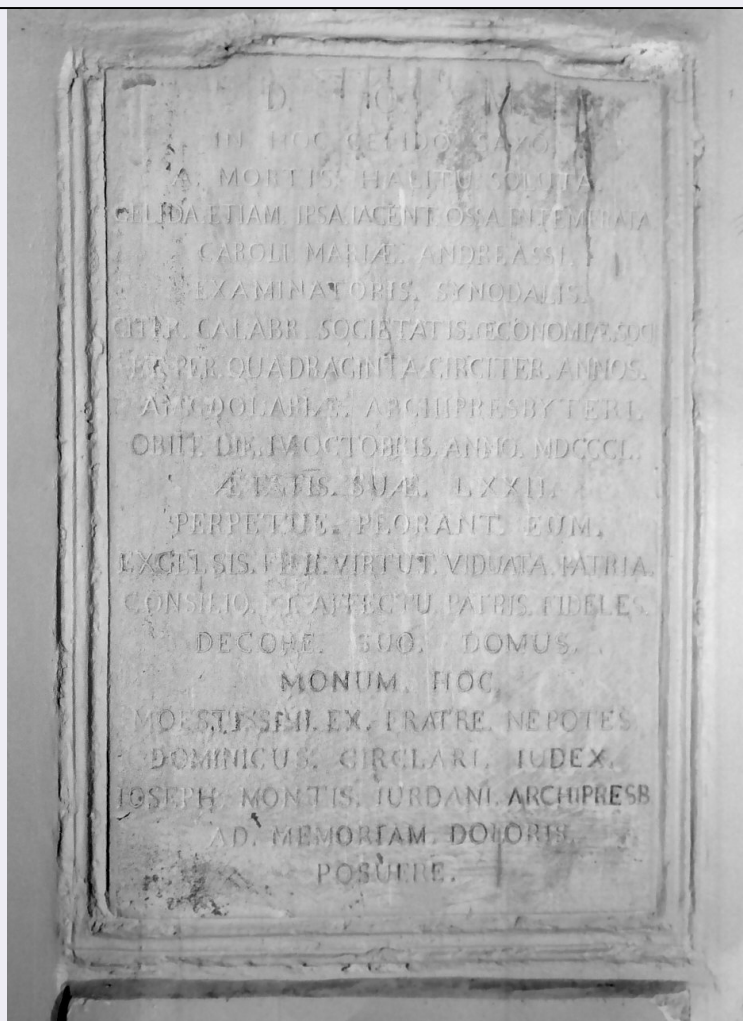 D. O. M.
IN HOC GELIDO SAXO.
A. MORTIS. HALITU SOLUTA.
GELIDA. ETIAM. IPSA. IACENT. OSSA. INTEMERATA
CAROLI. MARIÆ. ANDREASSI.
EXAMINATORIS. SYNODALIS.
CITER. CALABR. SOCIETATIS. ŒCONOMIÆ. SOC
PER. QUADRAGINTA. CIRCITER. ANNOS.
ARCHIPRESBYTERI.
OBIIT. DIE. IV. OCTOBRIS. ANNO. MDCCCL.
ÆTATIS. SUÆ. LXXII.
PERPETUE. PLORANT. EUM.
EXCELSIS. VIRTUT. VIDUATA. PATRIA.
CONSILIO. ET. AFFECTU. PATRIS. FIDELES.
DECORE. SUO. DOMUS.
MONUM. HOC.
MOESTISSIMI. EX. FRATRE. NEPOTES
DOMINICUS. CIRCLARI. IUDEX.
IOSEPH. MONTIS. IURDANI. ARCHIPRESB
AD. MEMORIAM. DOLORIS.
POSUERE.